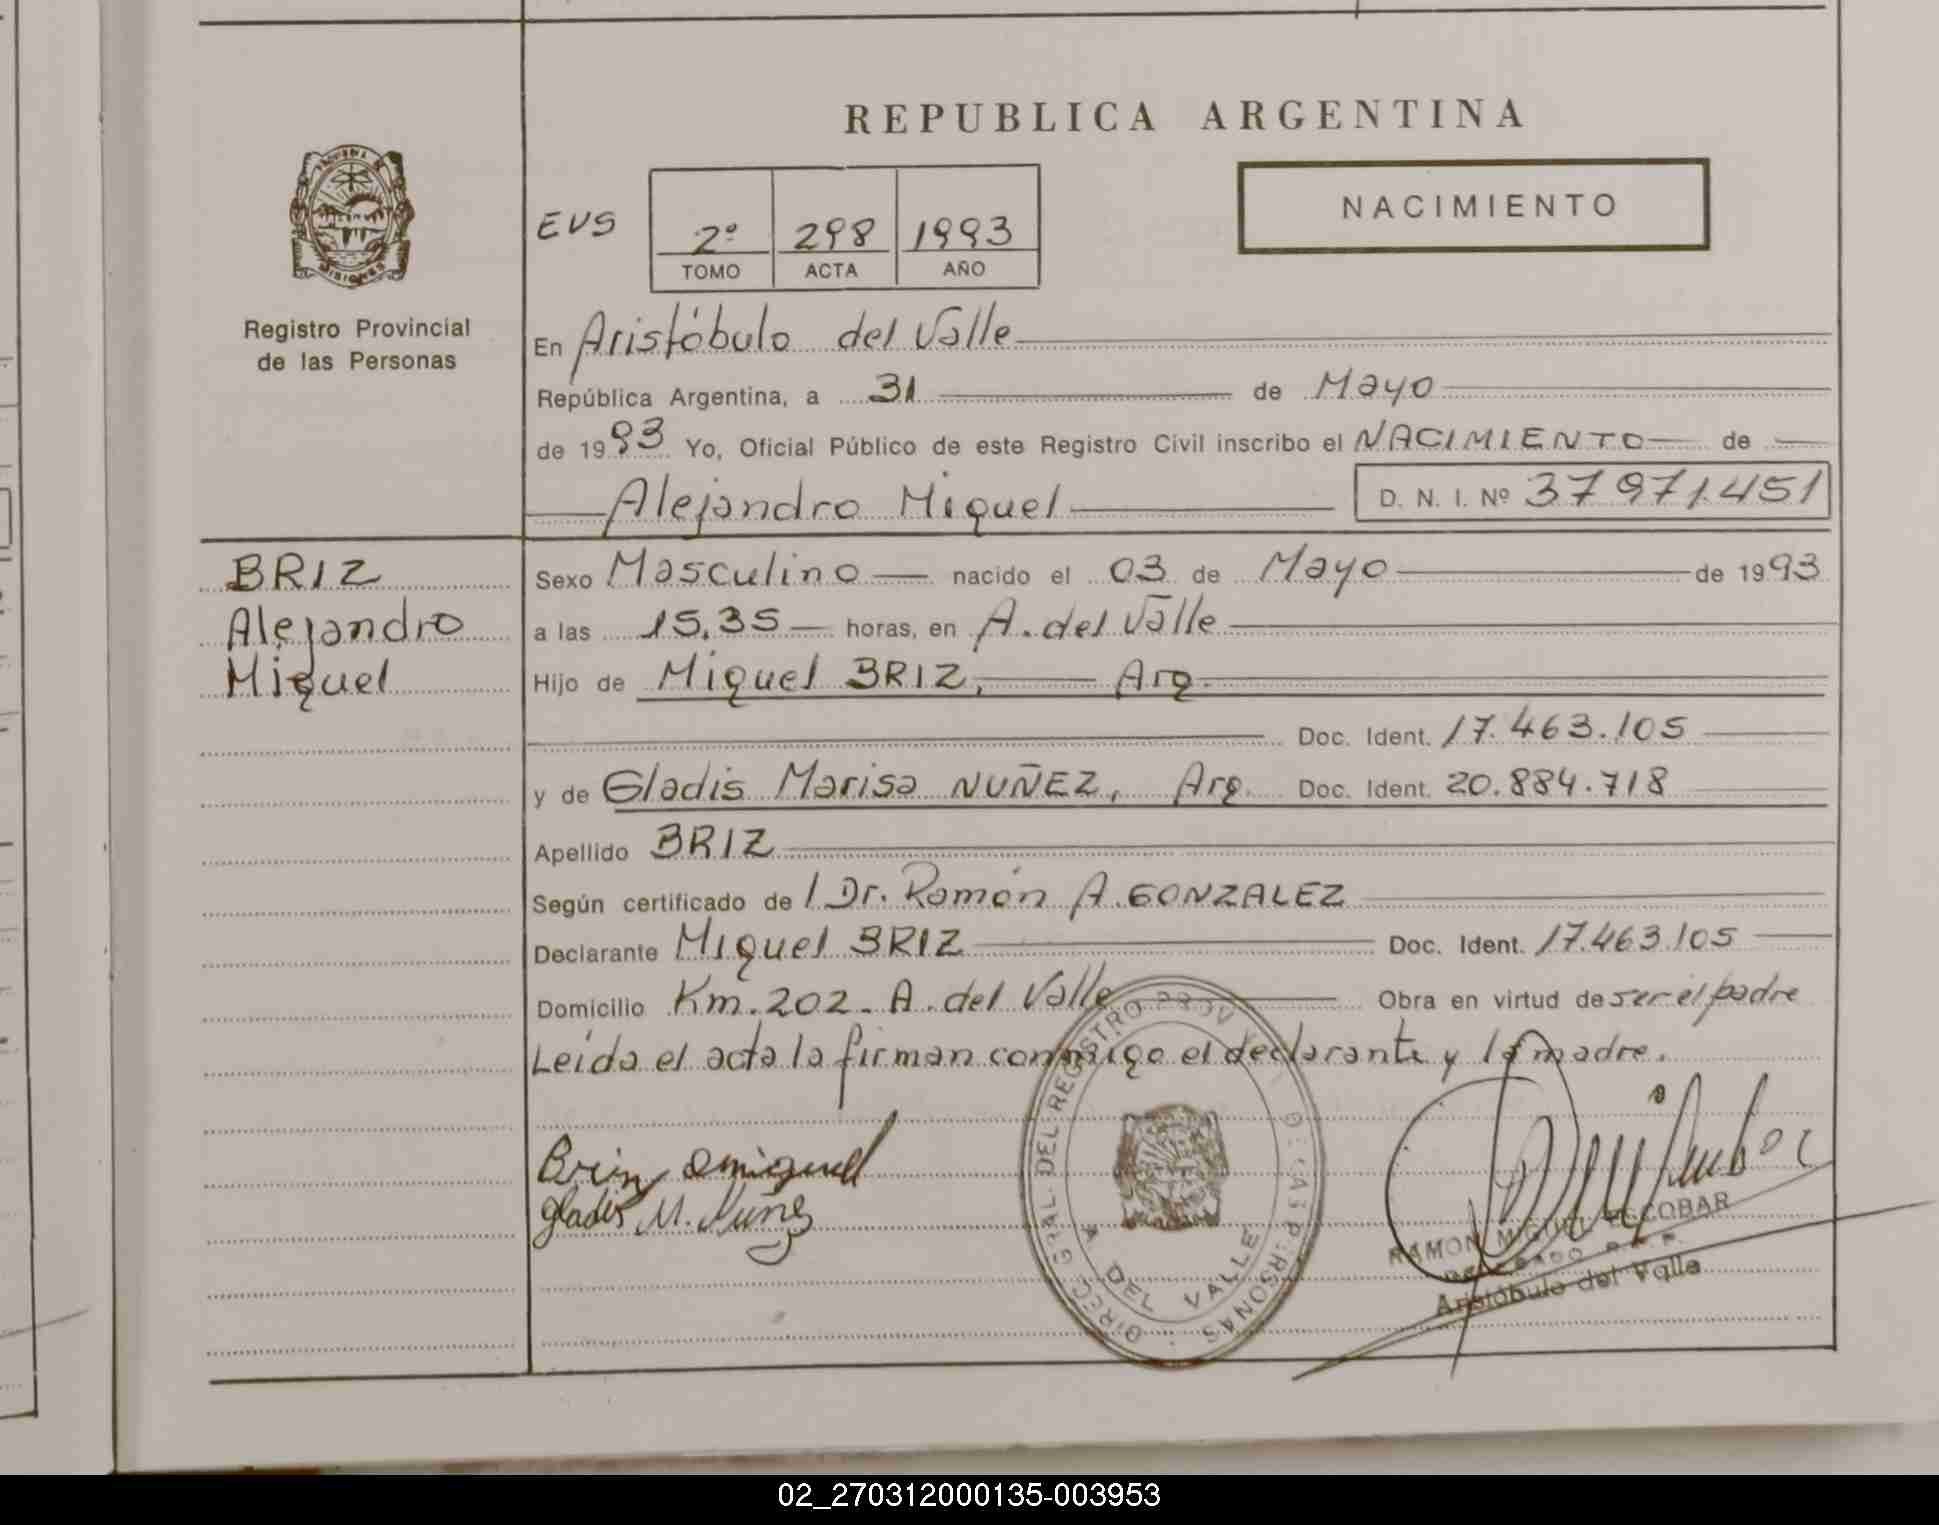 REPUBLICA ARGENTINA
NACIMIENTO
EVS
2º 298 1993
TOMO ACTA AÑO
Registro Provincial
de las Personas
En Aristóbulo del Valle
República Argentina, a 31 de Mayo
de 1993 Yo, Oficial Público de este Registro Civil inscribo el NACIMIENTO de
Alejandro Miguel D. N. I. Nº 37971.451
BRIZ
Alejandro
Miguel
Sexo Masculino nacido el 03 de Mayo de 1993
a las 15.35 horas, en A. del Valle
Hijo de Miguel BRIZ, Arg.
Doc. Ident. 17.463.105
y de Gladis Marisa NUÑEZ, Arg. Doc. Ident. 20.884.718
Apellido BRIZ
Según certificado de l Dr. Ramón A. GONZALEZ
Declarante Miguel BRIZ Doc. Ident. 17.463.105
Domicilio Km. 202 - A. del Valle Obra en virtud de ser el padre
Leída el acta la firman conmigo el declarante y la madre.
Gladis M. Nuñez
DIREC. GRAL. DEL REGISTRO PROV. DE LAS PERSONAS
A DEL VALLE
RAMON MIGUEL ESCOBAR
Aristóbulo del Valle
02_270312000135-003953